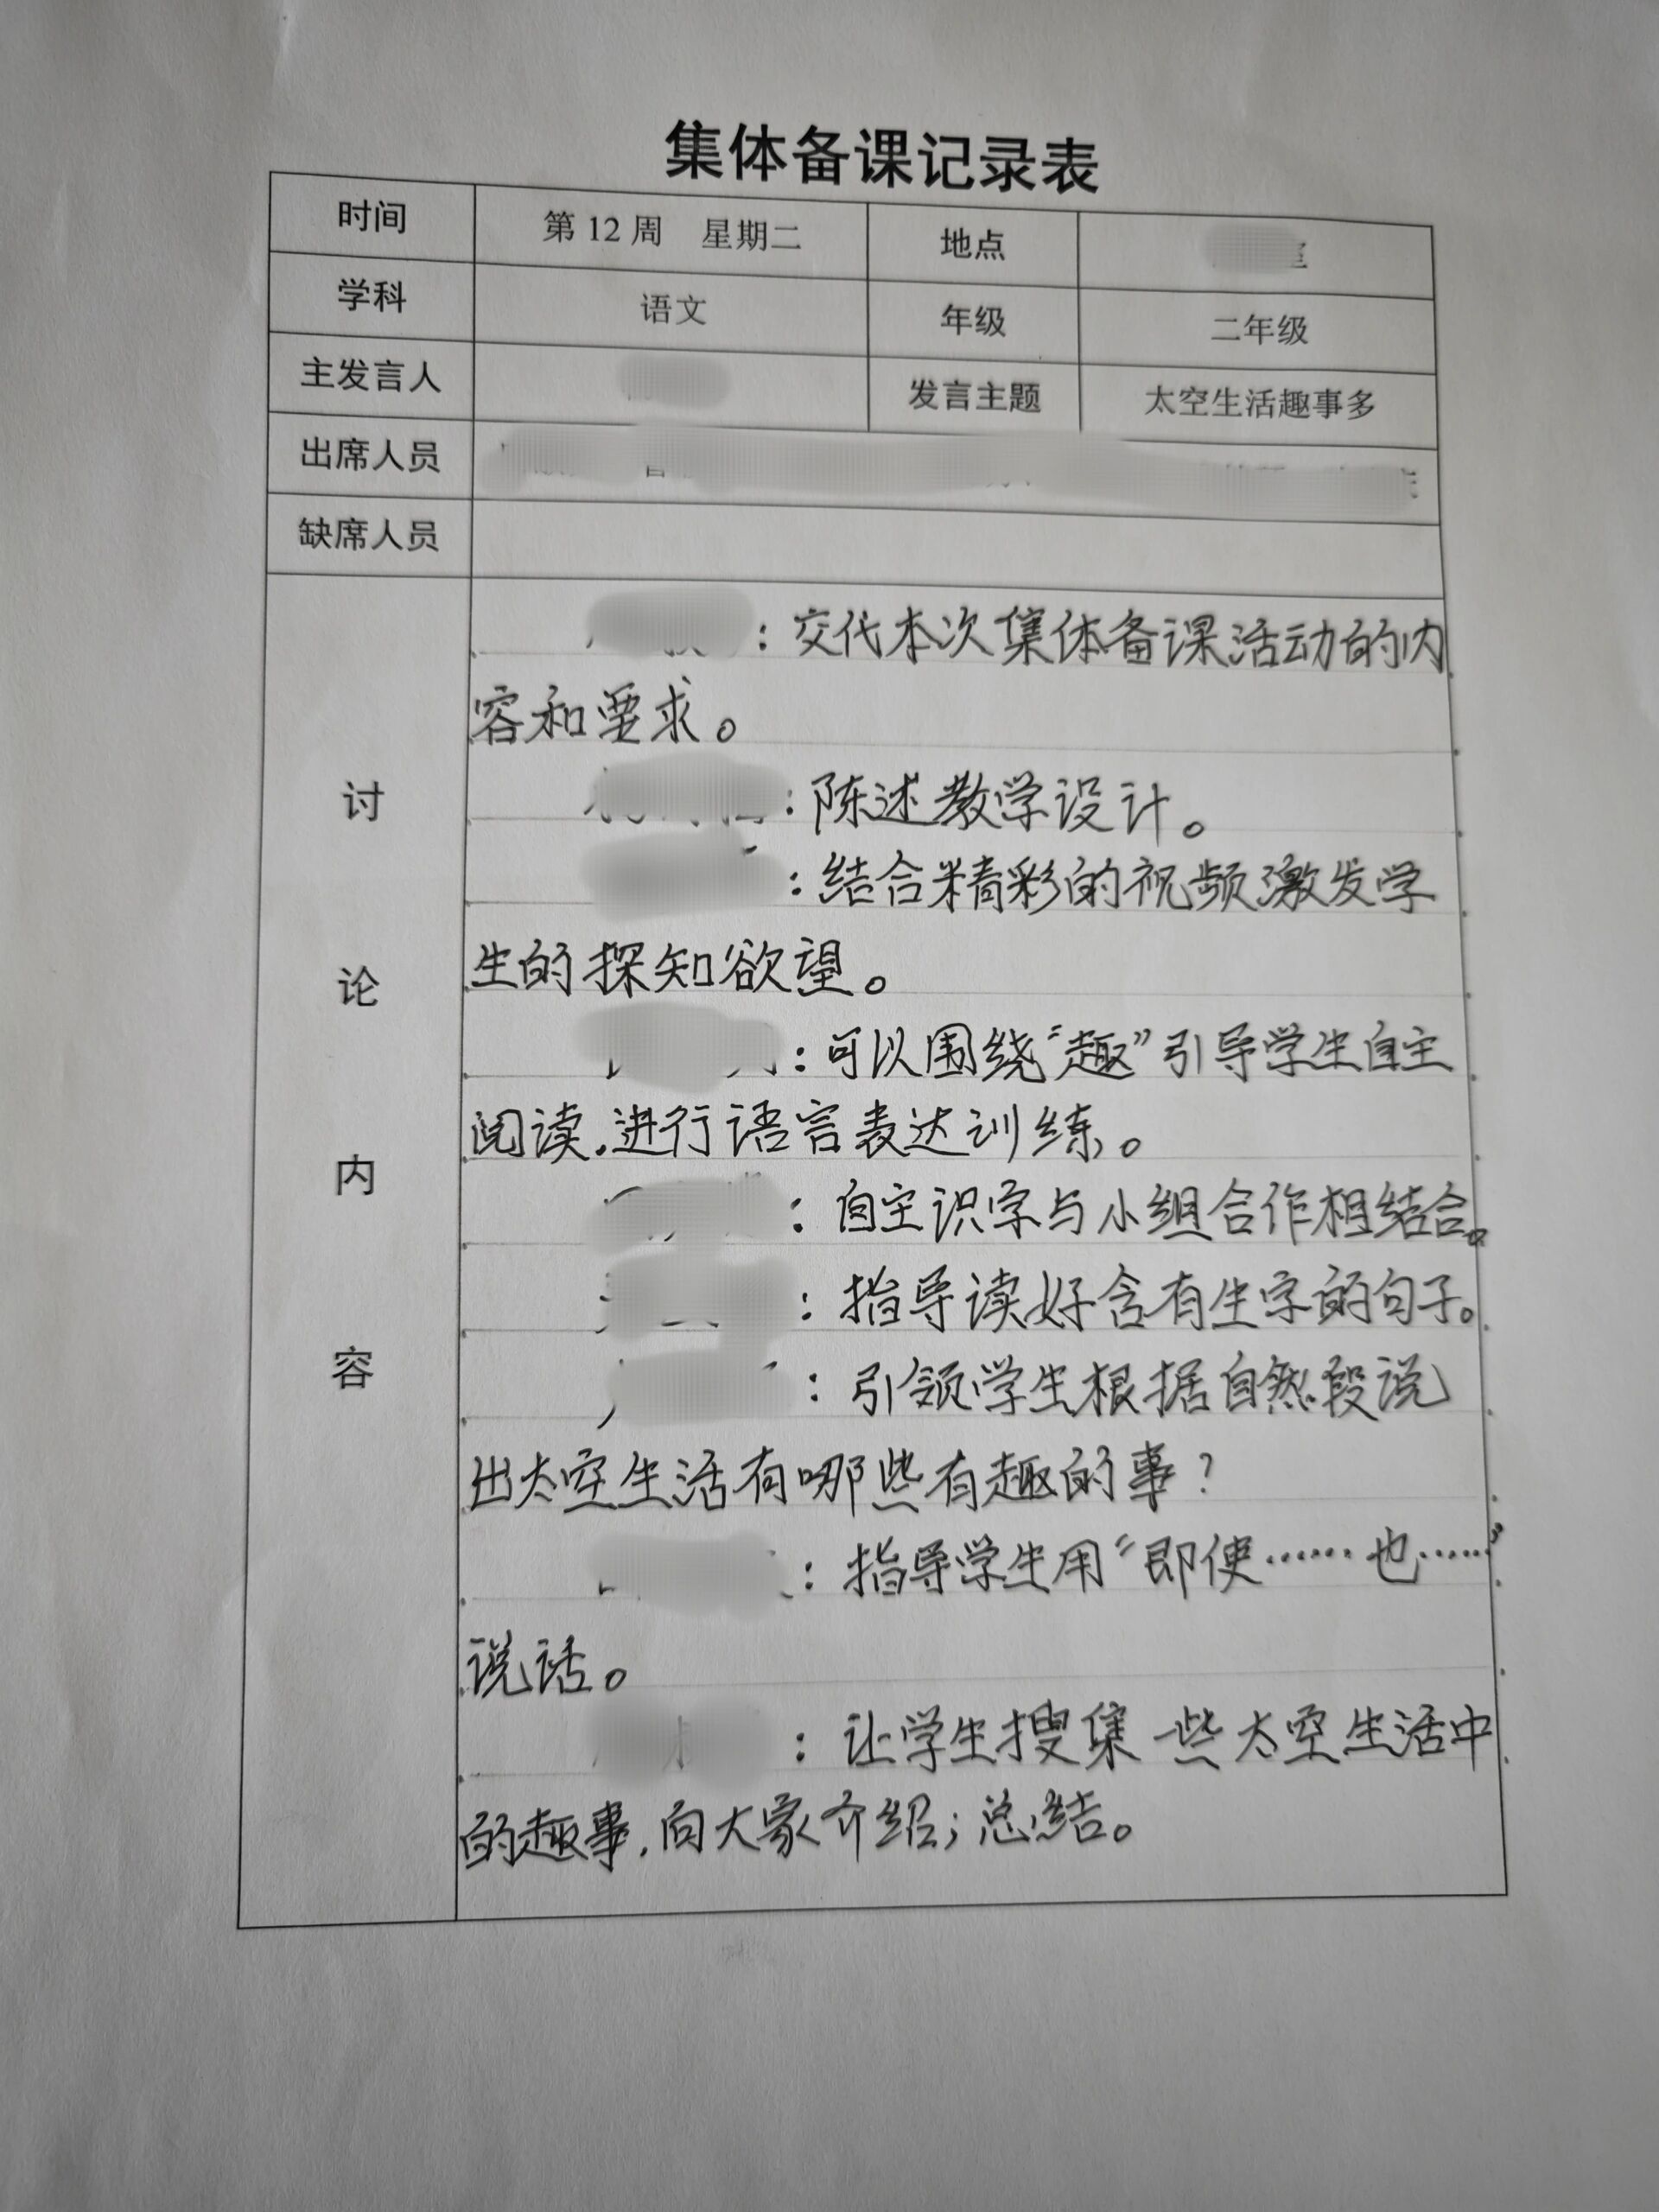 集体备课记录表
时间 第 12 周 星期二 地点
学科 语文 年级 二年级
主发言人 发言主题 太空生活趣事多
出席人员
缺席人员
讨论内容
：交代本次集体备课活动的内
容和要求。
：陈述教学设计。
：结合精彩的视频激发学
生的探知欲望。
：可以围绕“趣”引导学生自主
阅读，进行语言表达训练。
：自主识字与小组合作相结合。
：指导读好含有生字的句子。
：引领学生根据自然段说
出太空生活有哪些有趣的事？
：指导学生用“即使……也……”
说话。
：让学生搜集一些太空生活中
的趣事，向大家介绍；总结。